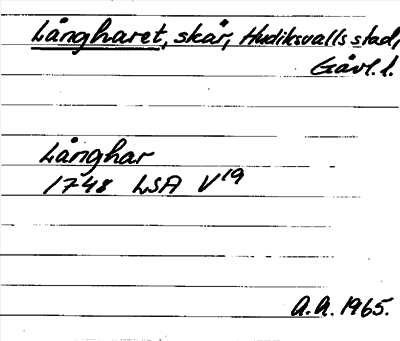 Långharet, skär, Hudiksvalls stad,
Gävl. l.
Långhar
1748 LSA V¹⁹
A.A. 1965.